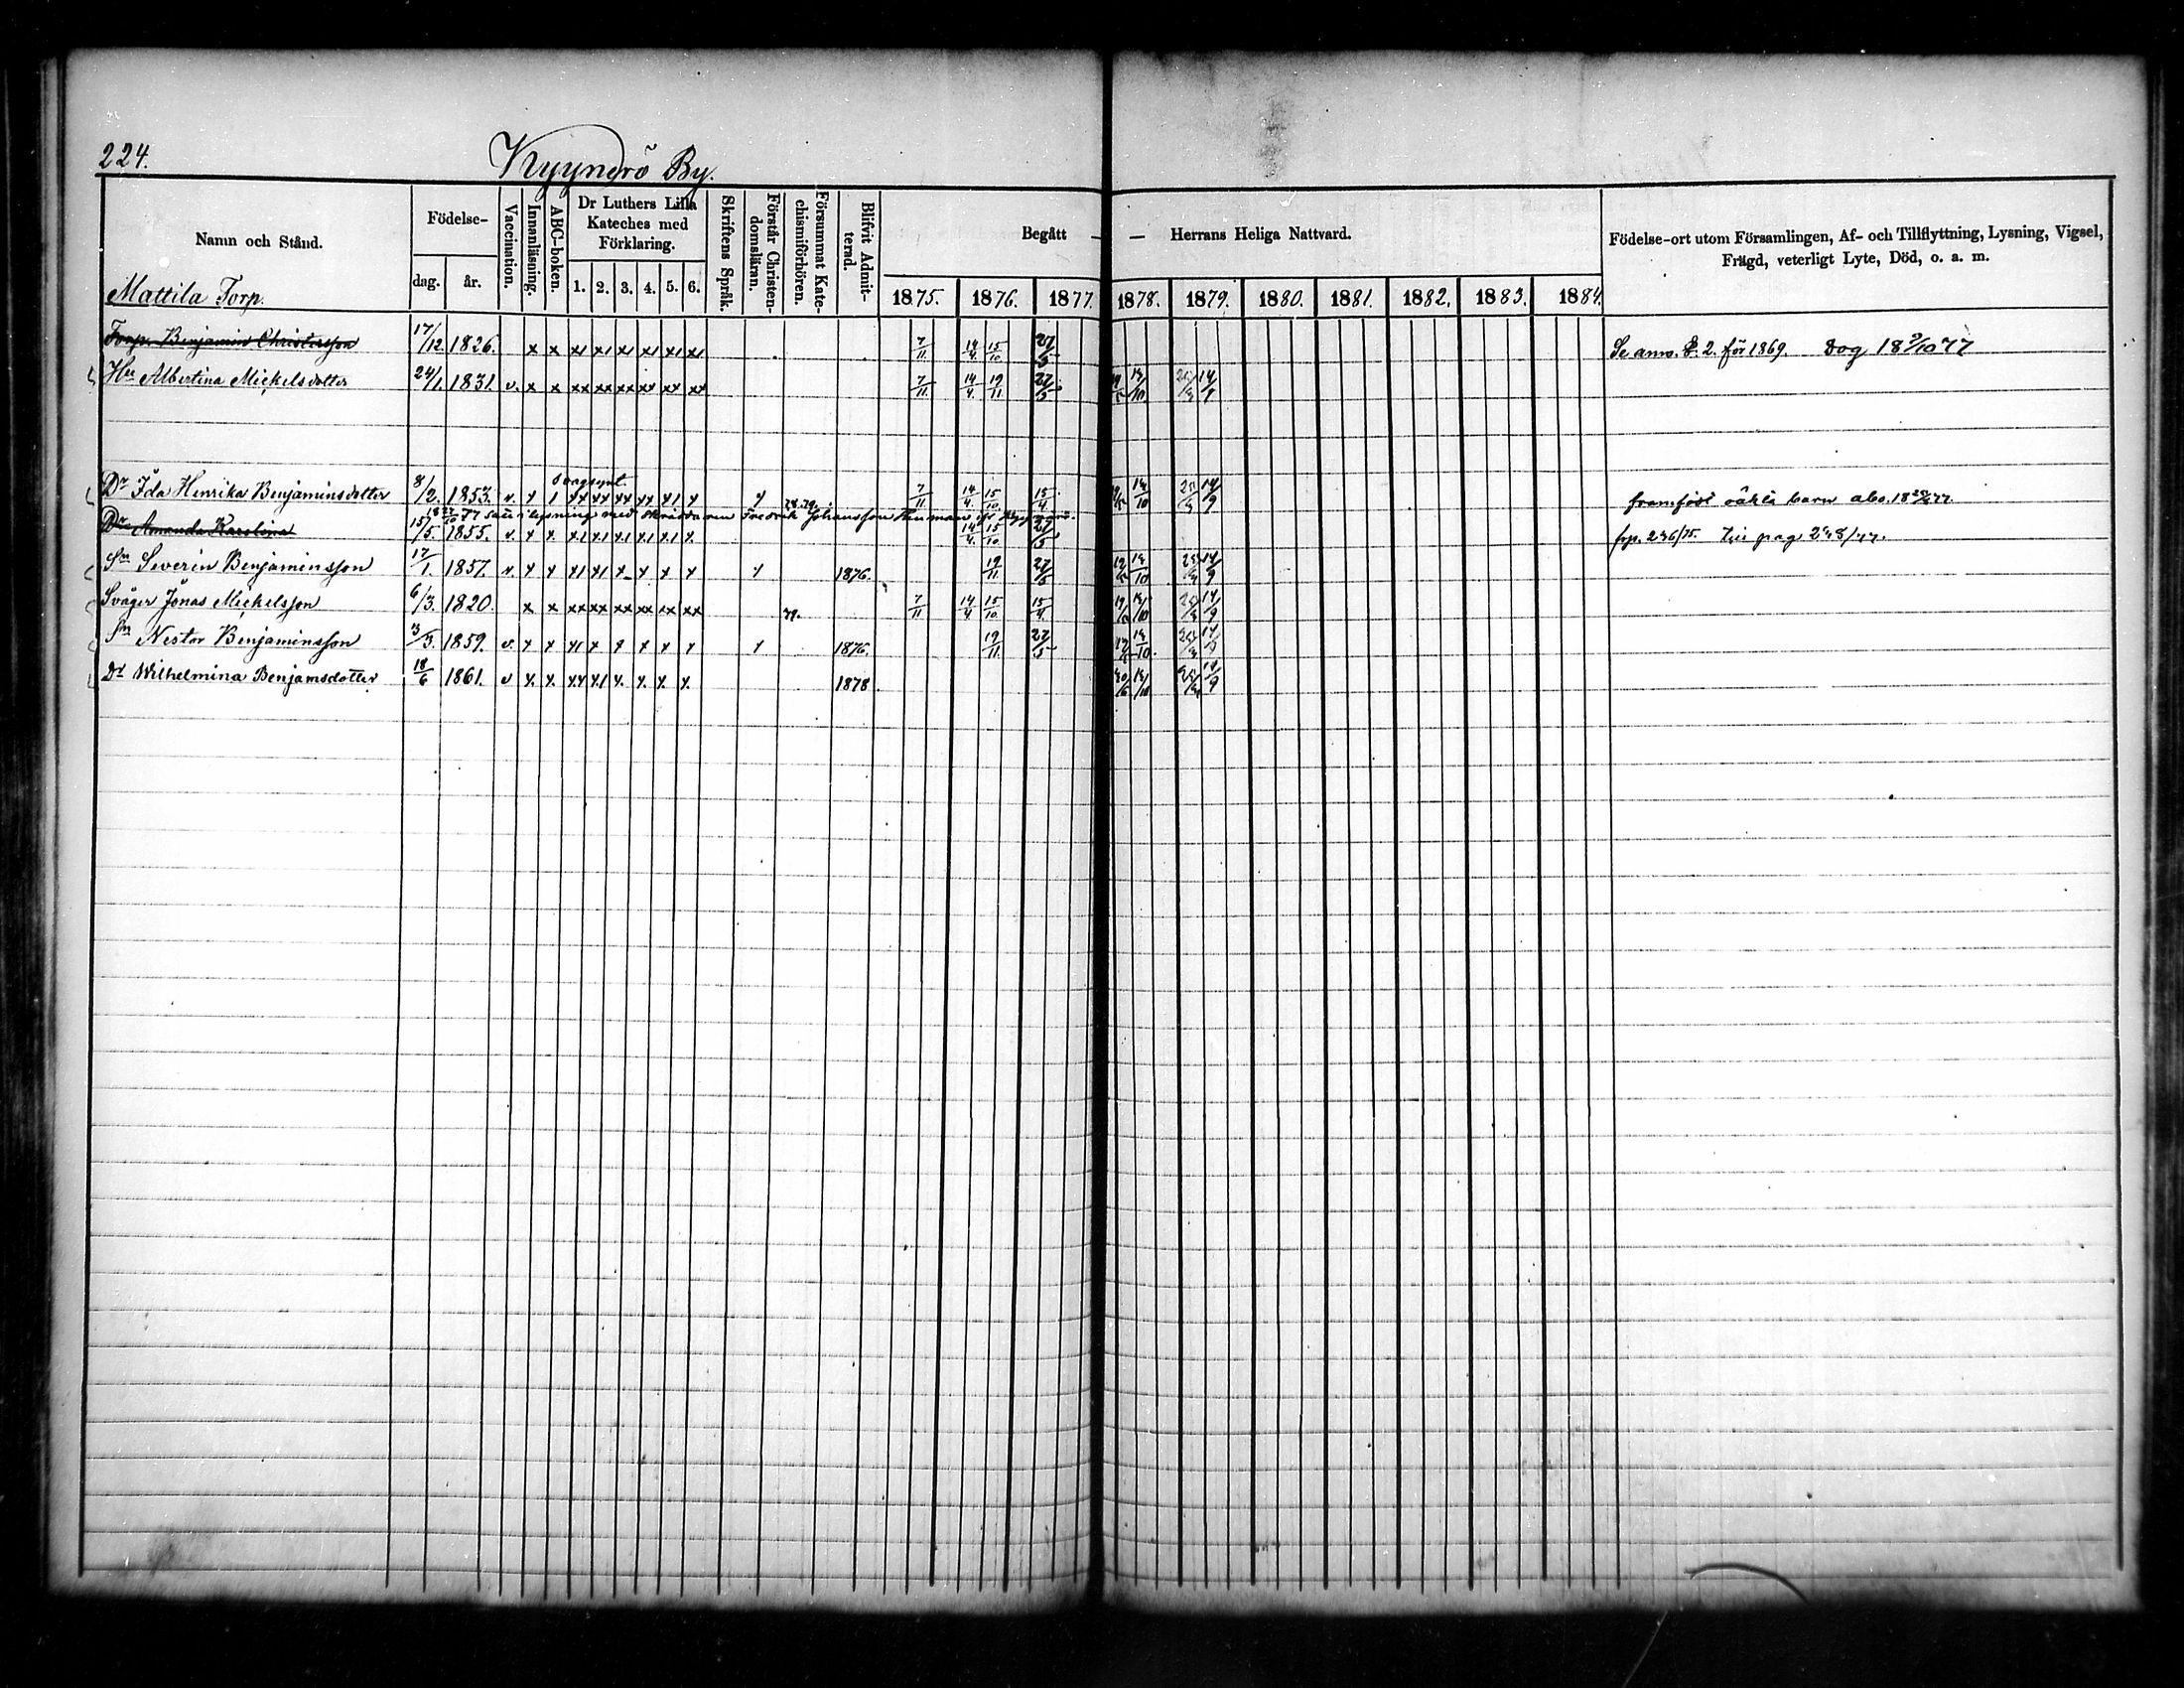 224.
Kyynärö By.
Namn och Stånd.
Födelse-
dag.
år.
Vaccination.
Innanläsning.
ABC-boken.
Dr Luthers Lilla
Kateches med
Förklaring.
1. 2. 3. 4. 5. 6.
Skriftens Språk.
Förstår Christen-
domsläran.
Försummat Kate-
chismiförhören.
Blifvit Admit-
terad.
Begått — — Herrans Heliga Nattvard.
1875. 1876. 1877. 1878. 1879. 1880. 1881. 1882. 1883. 1884.
Födelse-ort utom Församlingen, Af- och Tillflyttning, Lysning, Vigsel,
Frägd, veterligt Lyte, Död, o. a. m.
Mattila Torp.
Torp. Benjamin Christersson 17/12. 1826. x x x1 x1 x1 x1 x1 x1 7/11. 14/4. 15/10. 27/5 Se ann. 2. för 1869. Dog 18 9/10 77
Hu Albertina Mickelsdotter 24/1. 1831. v. x x xx xx xx xx xx xx 7/11. 14/4. 19/11 27/5 14/10 14/9
Dr Ida Henrika Benjaminsdotter 8/2. 1853. v. x 1 xx xx xx xx x1 x 7/11 14/4. 15/10. 15/4 14/10 14/9 barn abs. 18
77 lysning med skräddaren Fredrik Johansson
Dr Amanda Karolina 15/5. 1855. v. x x x1 x1 x1 x1 x1 x. 14/4. 15/10 27/5 frp. 236/75. till pag
Sn Severin Benjaminsson 17/1. 1857. v. x x x1 x1 x x x x 1876. 19/11 27/5 14/10 14/9
Svåger Jonas Mickelsson 6/3. 1820. x x xx xx xx xx xx xx 79. 7/11 14/4 15/10. 15/4. 14/10 14/9
Sn Nestor Benjaminsson 3/3. 1859. v. x x x1 x x x x x 1876. 19/11. 27/5 14/10. 14/9
Dr Wilhelmina Benjamsdotter 18/6 1861. v x. x. xx x1 x. x. x. x. 1878 14/10 14/9